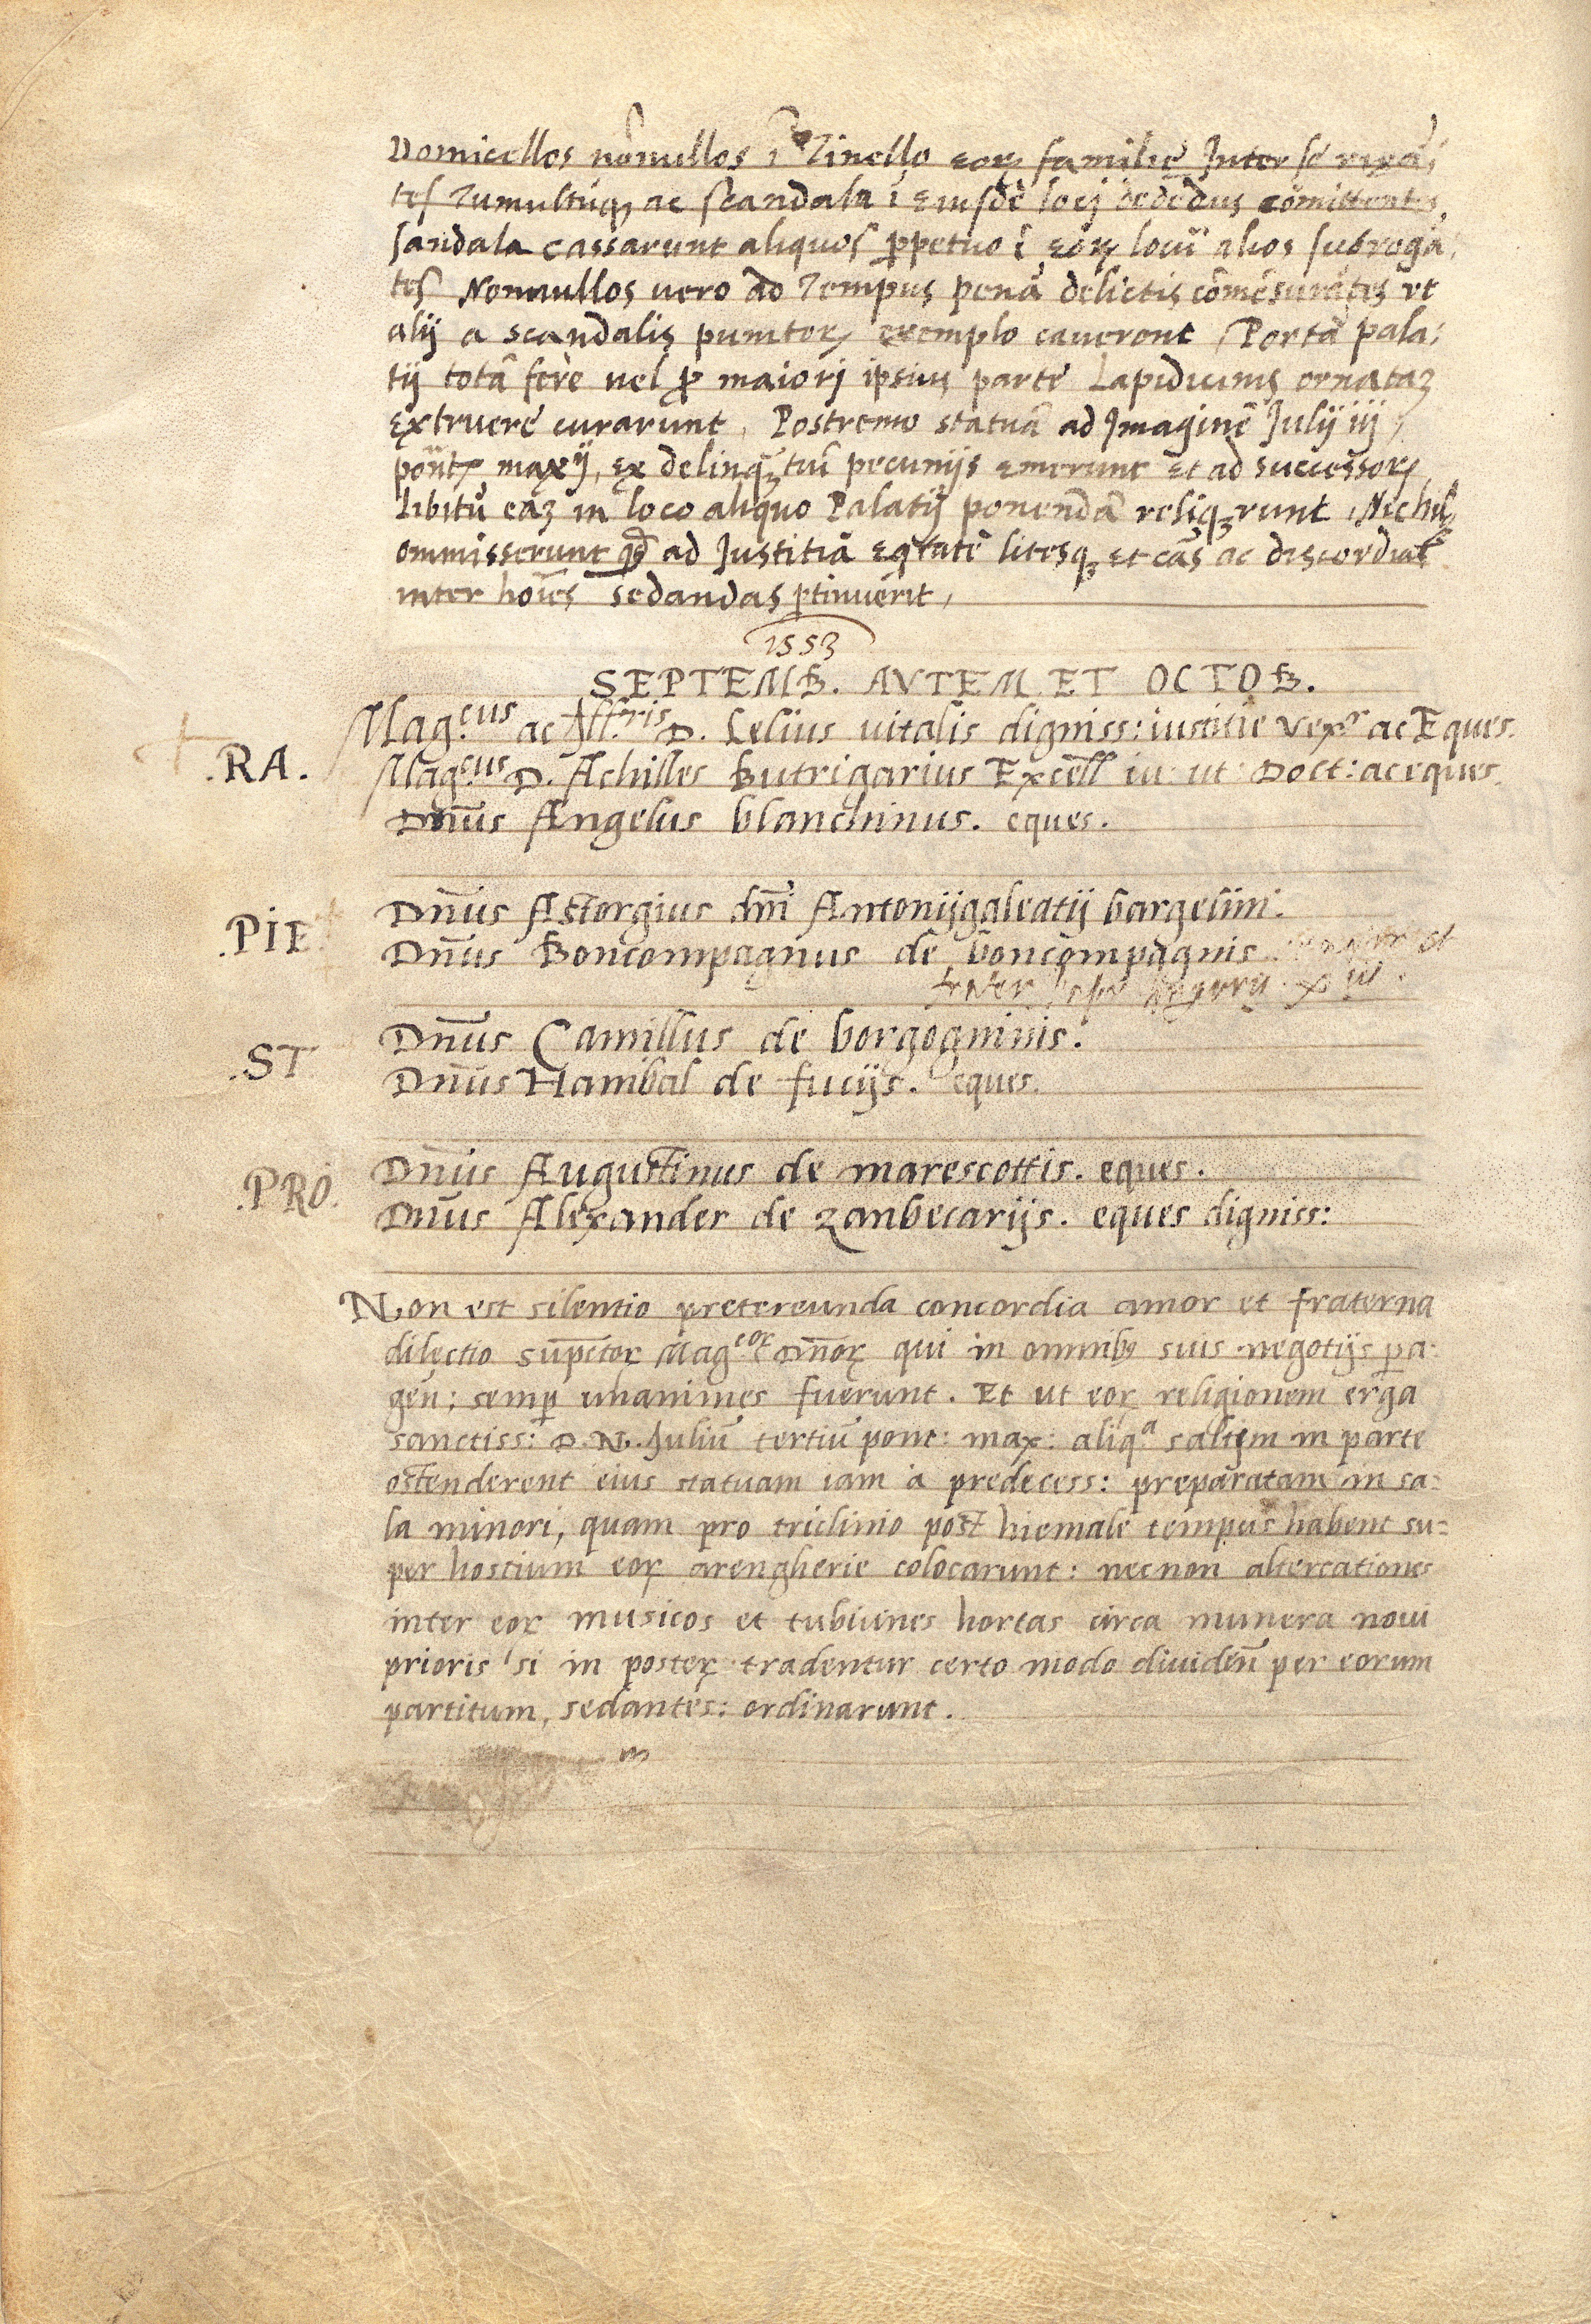 Domicellos nōnullos ī Tinello eorꝝ familie Inter se rixā-
tes Tumultūqꝫ ac scandala ī eiusdē locj dedēdus cōmittentes
sandala cassarunt aliquos ꝑpetuo ī eorꝝ locū alios subrogā-
tes Nonnullos uero ad Tempus penā delictis cōmēsurātes ut
alij a scandalis punitorꝝ exemplo cauerent Portā pala-
tij totā ferè uel ꝓ maiorj ipsius parte Lapidicinis ornataꝫ
extruere curarunt, Postremo statuā ad Imaginē Julij iij,
pont maxij, ex delinqꝫtiū pecunijs emerunt et ad successorꝝ
libitū eaꝫ in loco aliquo Palatij ponendā reliqꝫrunt, Nichil
ommisserunt qđ ad Justitiā eqtatē litesqꝫ et cās ac discordias
inter hoīes sedandas ꝑtinuerit,
1553
SEPTEMB. AVTEM ET OCTOB.
.RA. Mag.cus ac Ill.ris D. Lelius uitalis digniss: iustitie vexr ac Eques.
Mag.cus D. Achilles Butrigarius Excell iu: ut: Doct: ac eques.
Dn̄us Angelus blanchinus. eques.
.PIE. Dn̄us Astorgius dn̄i Antonijgaleatij bargelini.
Dn̄us Boncompagnus de boncompagnis. et
frater pape xiii.
.ST Dn̄us Camillus de borgogninis.
Dn̄us Hanibal de fucijs. eques.
.PRO. Dn̄us Augustinus de marescottis. eques.
Dn̄us Alexander de zanbecarijs. eques digniss:
Non est silentio pretereunda concordia amor et fraterna
dilectio sup̄ctoꝝ Mag.coꝝ Dn̄oꝝ qui in omnibꝰ suis negotijs ꝑa-
gen̄: semꝑ unanimes fuerunt. Et ut eoꝝ religionem erga
sanctiss: D. N. Juliū tertiū pont: max: aliq.a saltem in parte
ostenderent eius statuam iam à predecess: preparatam in sa-
la minori, quam pro triclinio post hiemale tempus habent su-
per hostium eoꝝ arengherie colocarunt: necnon altercationes
inter eoꝝ musicos et tubicines hortas circa munera noui
prioris si in posteꝝ tradentur certo modo diuiden̄ per eorum
partitum, sedantes: ordinarunt.